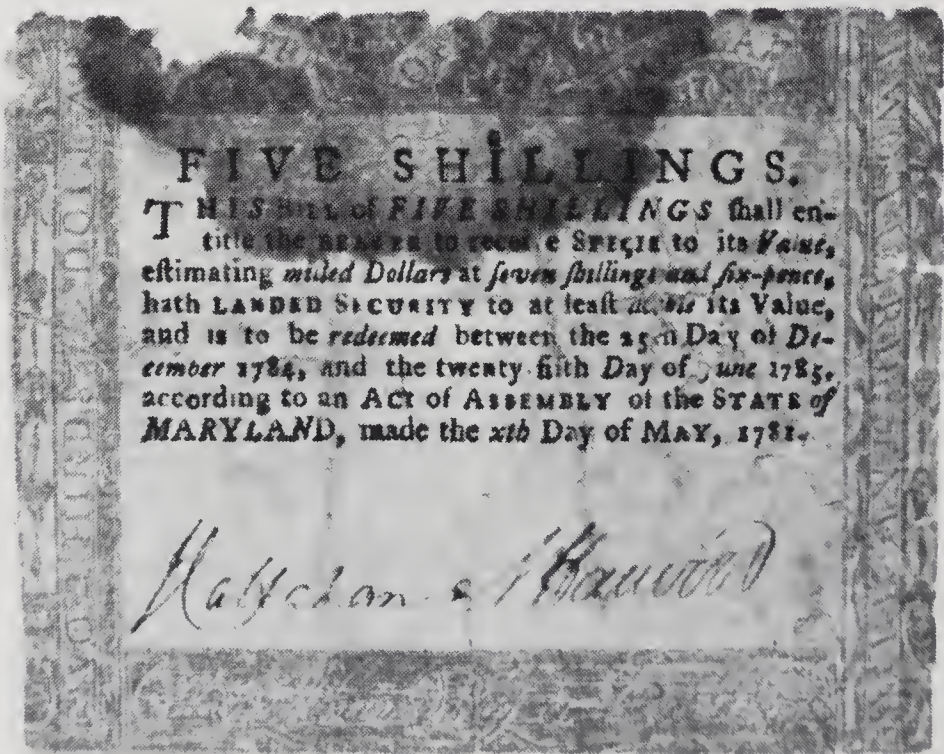 FIVE SHILLINGS.
THIS BILL of FIVE SHILLINGS ſhall en-
title the BEARER to receive SPECIE to its Value,
eſtimating milled Dollars at ſeven ſhillings and ſix-pence,
hath LANDED SECURITY to at leaſt its Value,
and is to be redeemed between the 25th Day of De-
cember 1784, and the twenty fifth Day of June 1785,
according to an ACT of ASSEMBLY of the STATE of
MARYLAND, made the xth Day of MAY, 1781.
Harwood